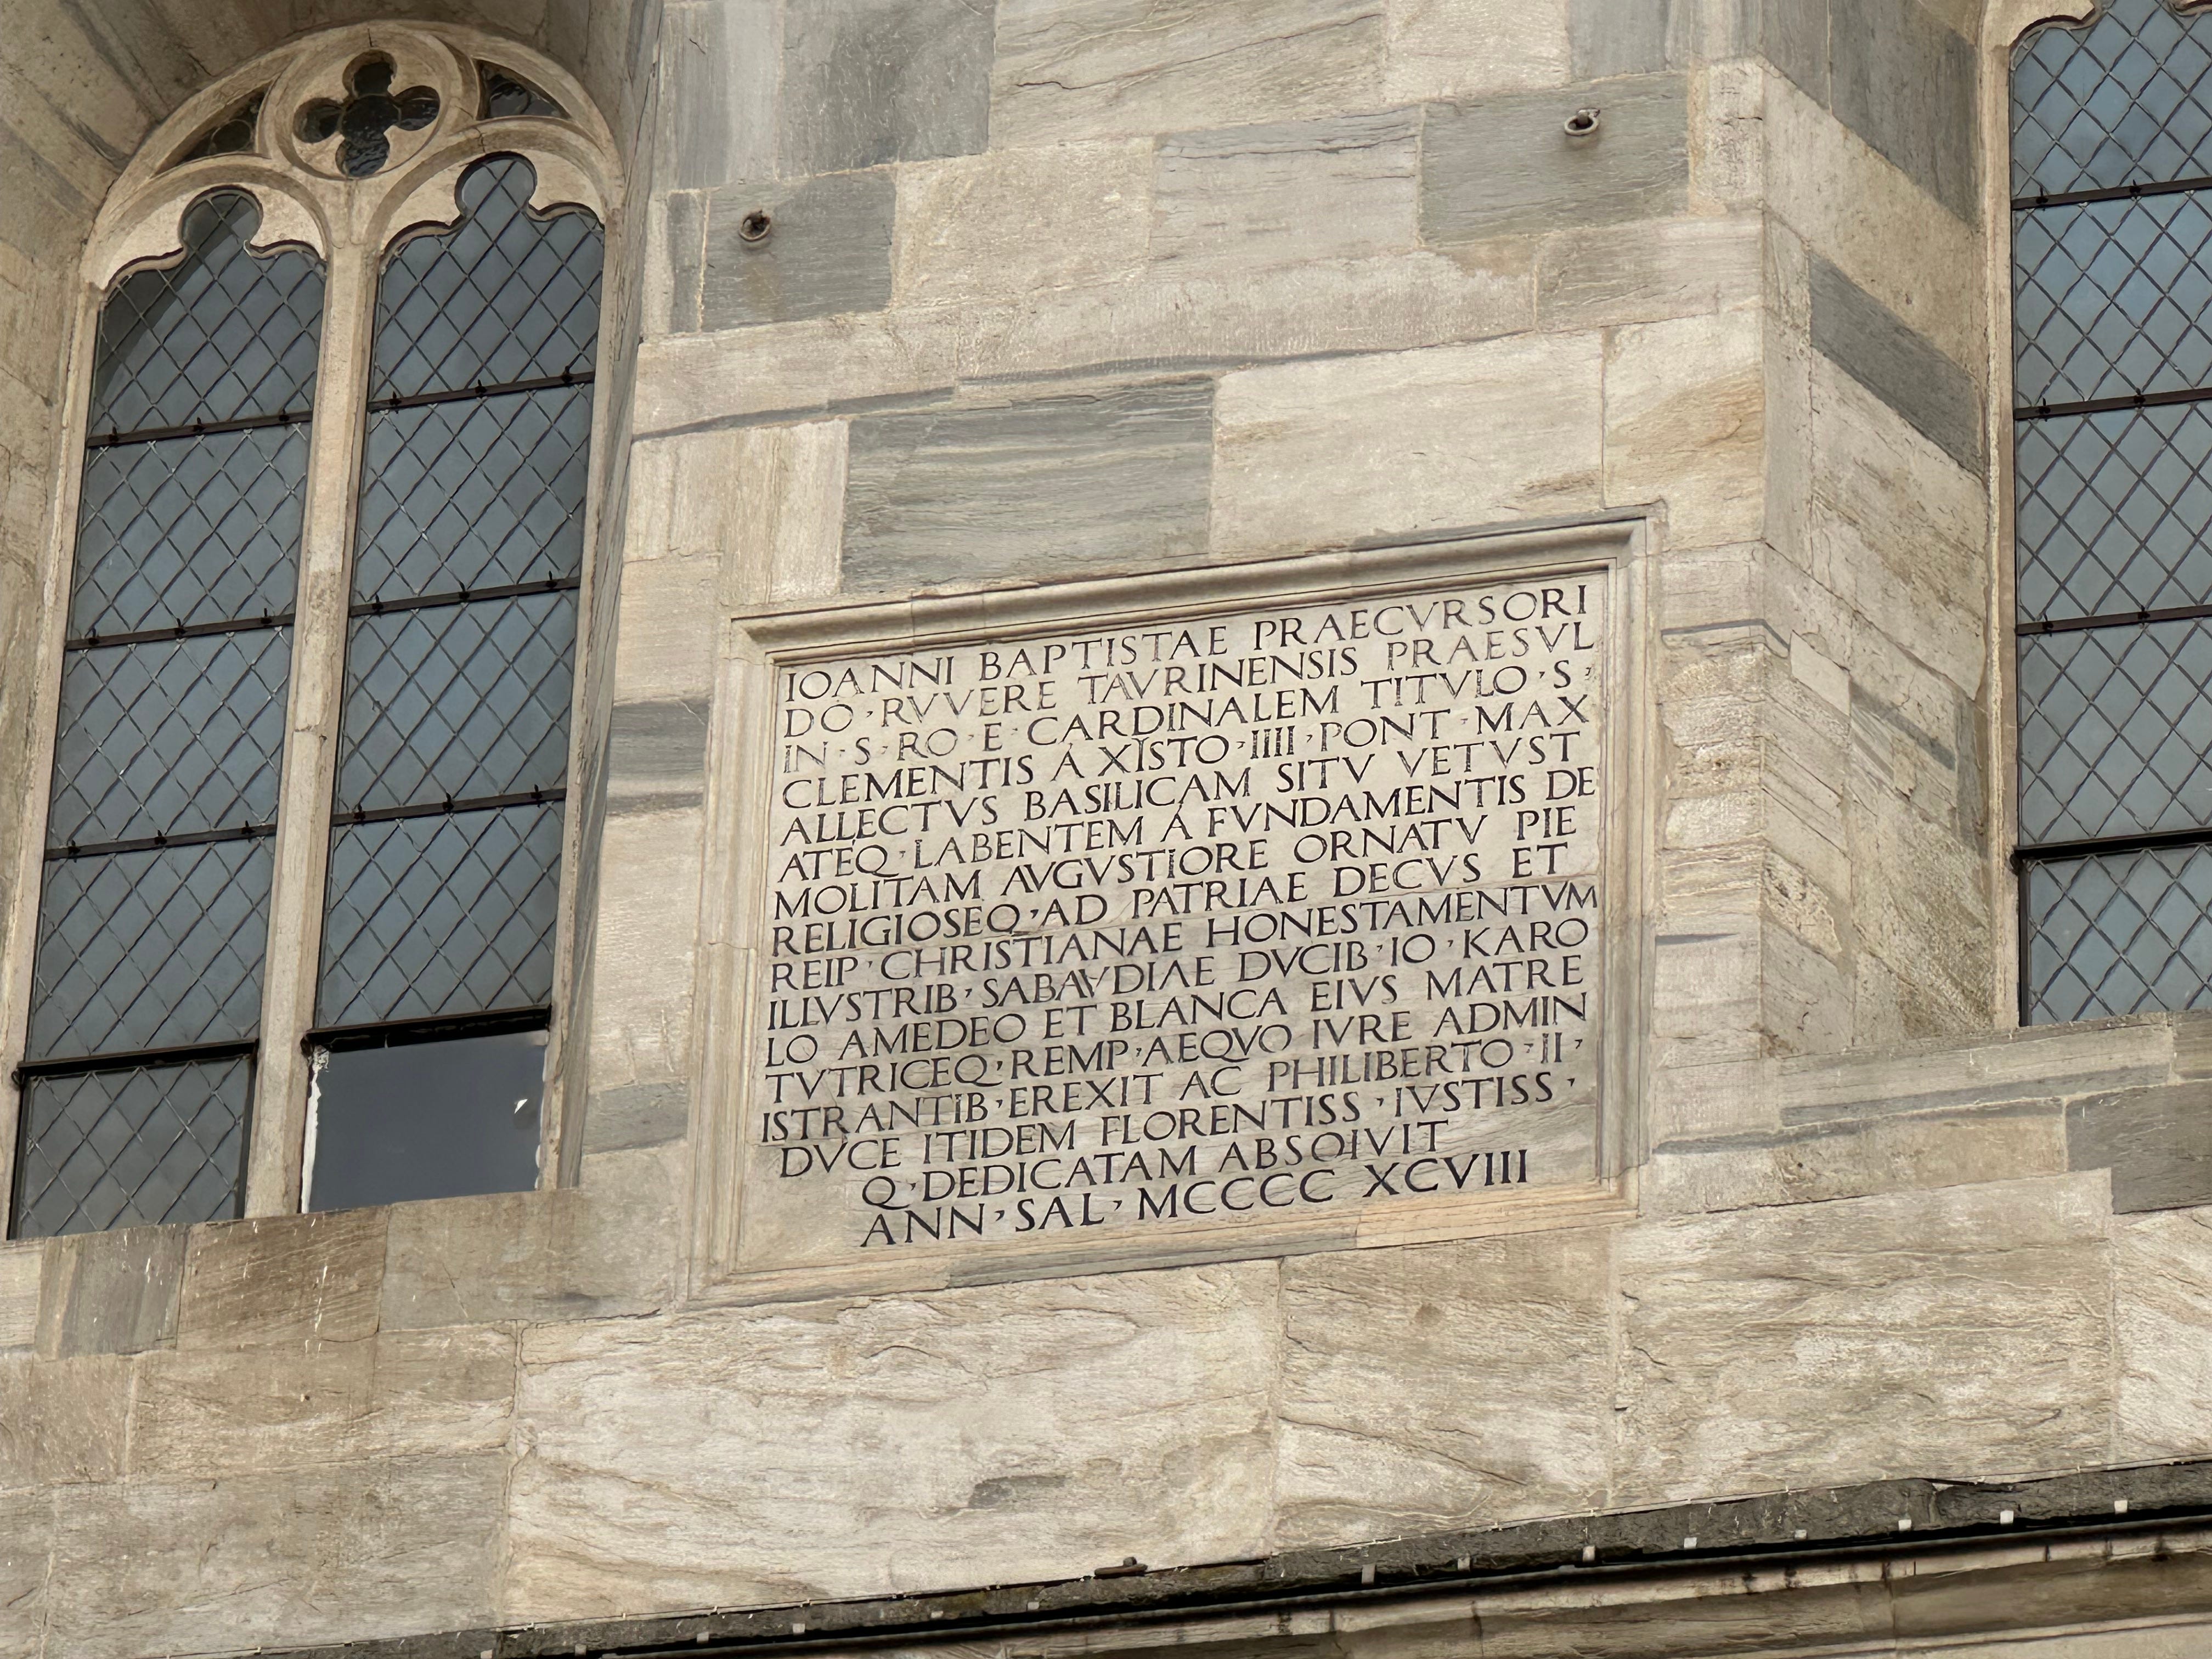 IOANNI BAPTISTAE PRAECVRSORI
DO · RVVERE TAVRINENSIS PRAESVL
IN · S · RO · E · CARDINALEM TITVLO · S ·
CLEMENTIS A XISTO · IIII · PONT · MAX
ALLECTVS BASILICAM SITV VETVST
ATEQ · LABENTEM A FVNDAMENTIS DE
MOLITAM AVGVSTIORE ORNATV PIE
RELIGIOSEQ · AD PATRIAE DECVS ET
REIP · CHRISTIANAE HONESTAMENTVM
ILLVSTRIB · SABAVDIAE DVCIB · IO · KARO
LO AMEDEO ET BLANCA EIVS MATRE
TVTRICEQ · REMP · AEQVO IVRE ADMIN
ISTRANTIB · EREXIT AC PHILIBERTO · II ·
DVCE ITIDEM FLORENTISS · IVSTISS ·
Q · DEDICATAM ABSOIVIT
ANN · SAL · MCCCC XCVIII